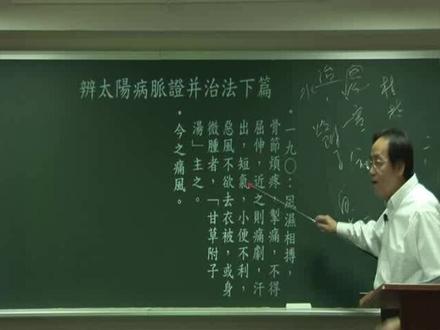 辨太陽病脈證并治法下篇
・一九○：風濕相搏，
骨節煩疼，掣痛，不得
屈伸，近之則痛劇，汗
出，短氣，小便不利，
惡風不欲去衣被，或身
微腫者，「甘草附子
湯」主之。
・今之痛風。